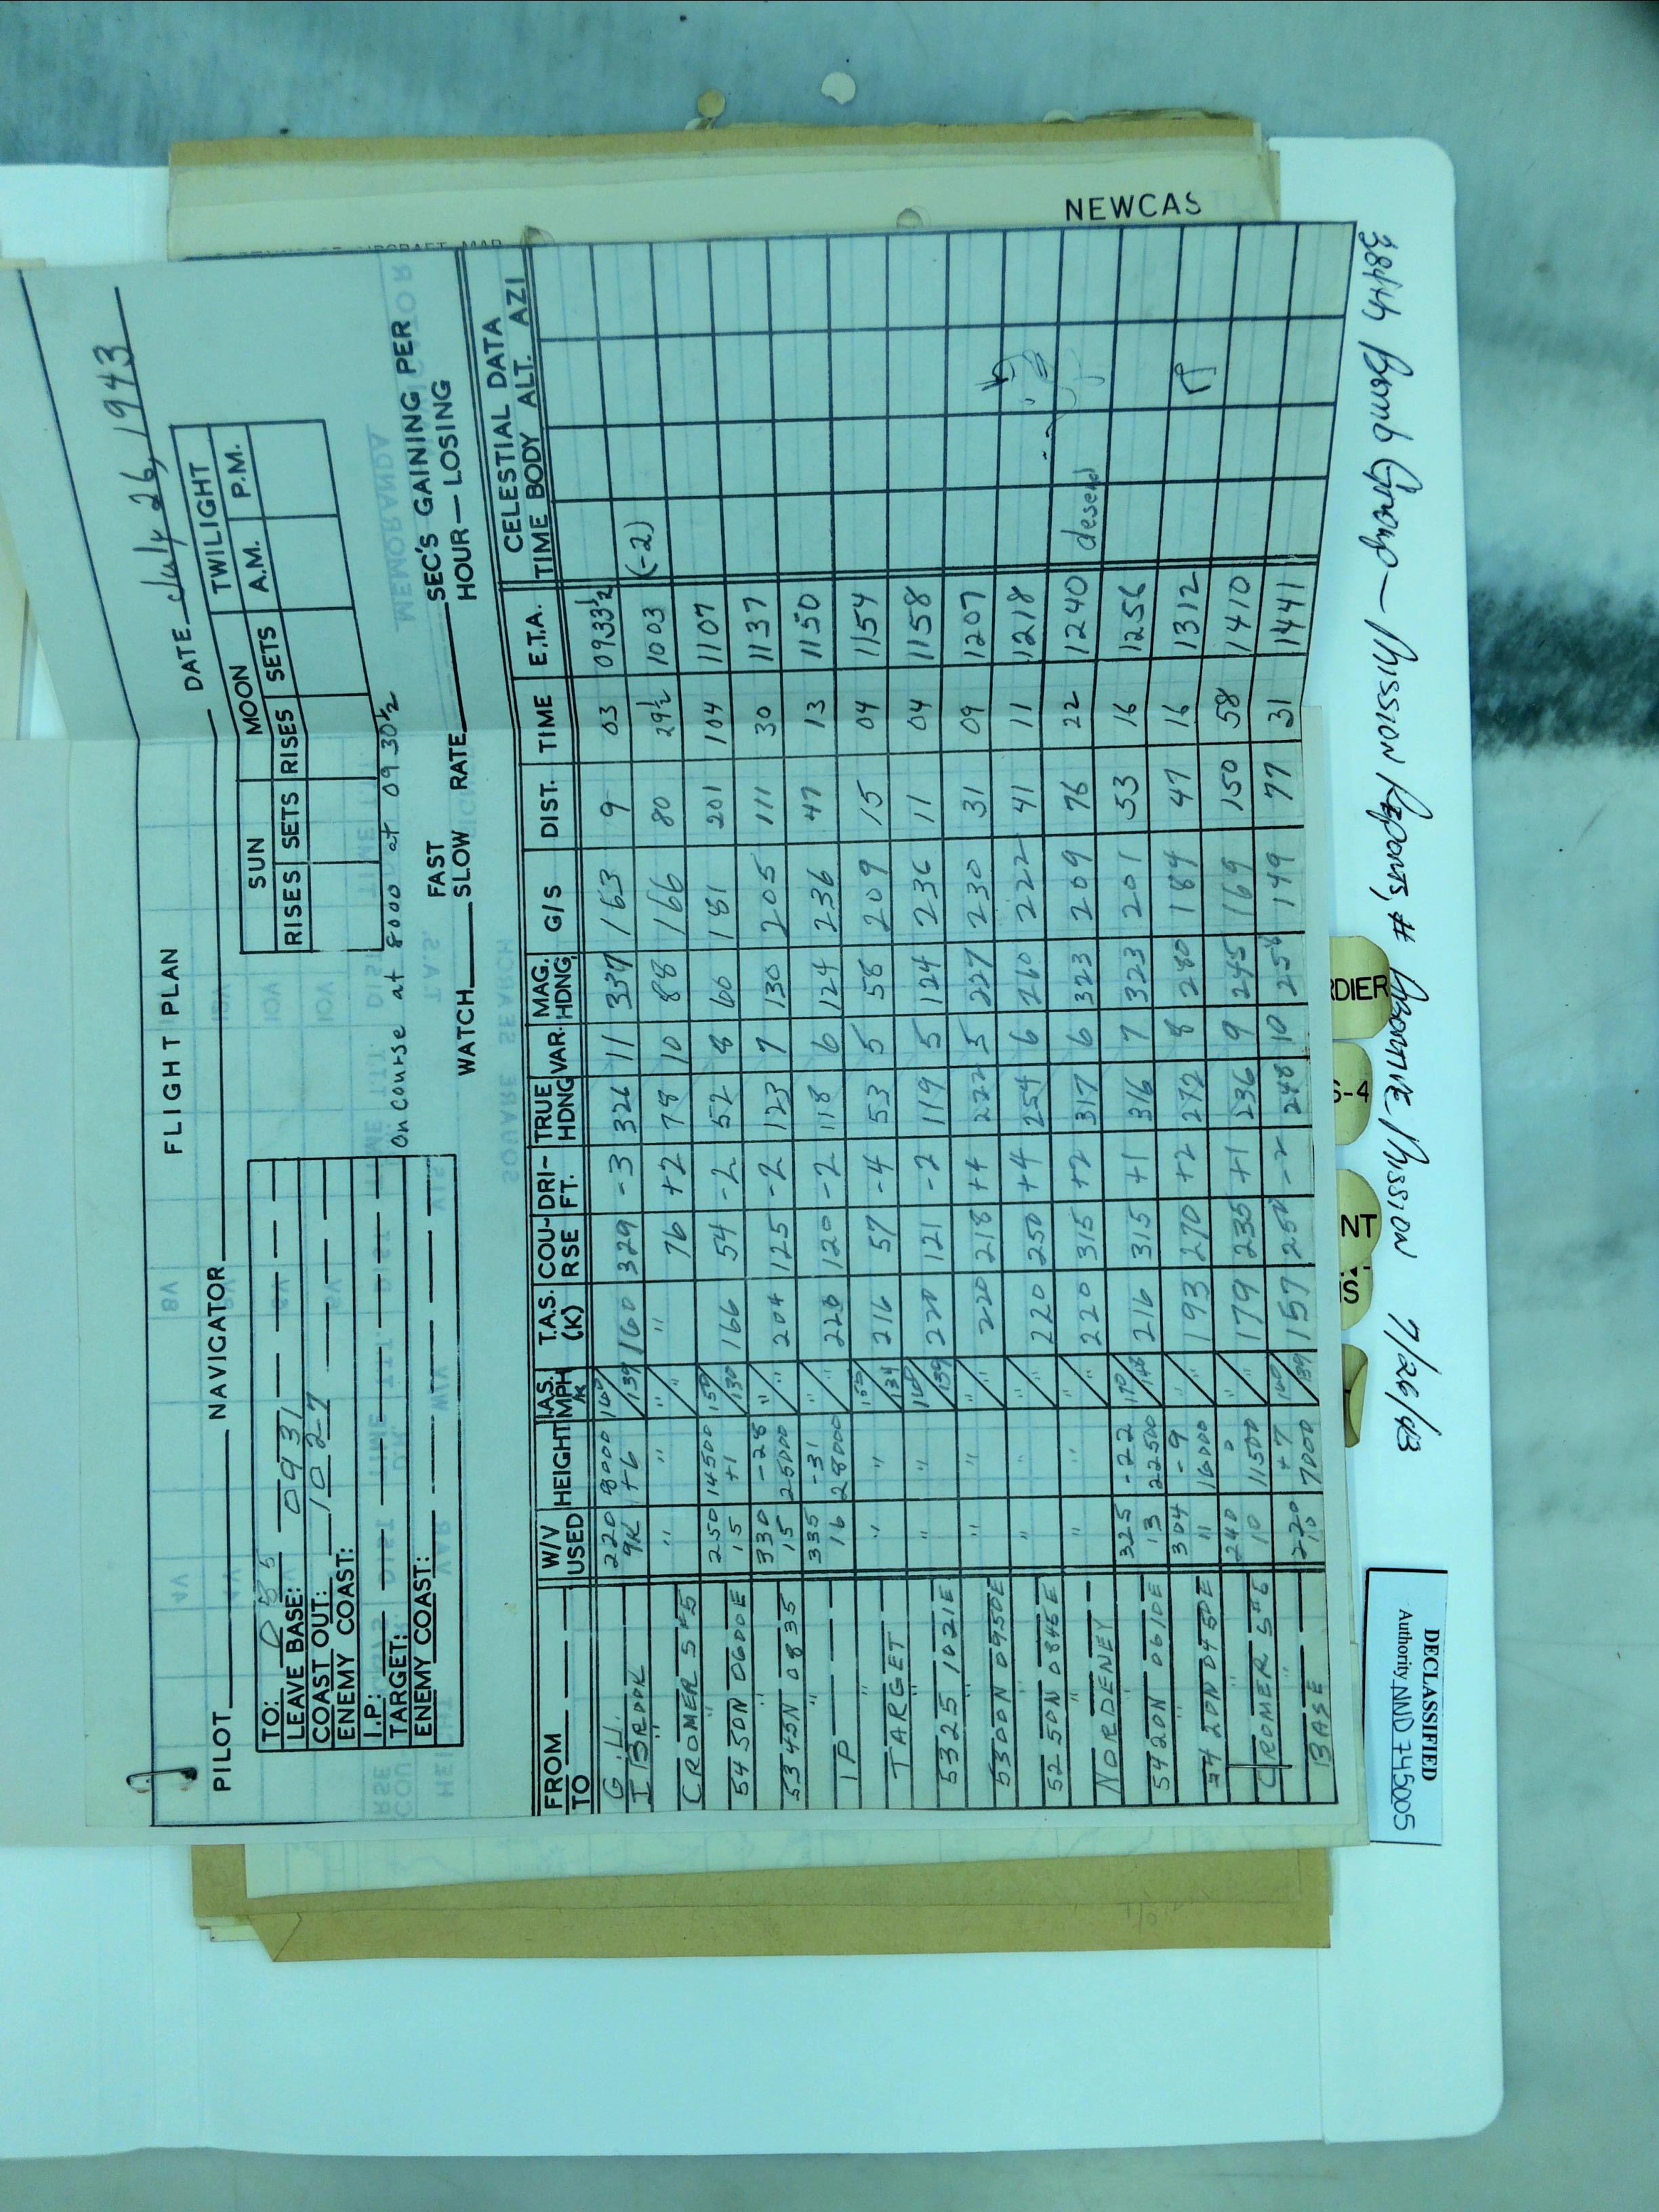 NEWCAS
FLIGHT PLAN
PILOT NAVIGATOR DATE July 26, 1943
TO:
LEAVE BASE: 0931
COAST OUT: 1027
ENEMY COAST:
I.P:
TARGET:
ENEMY COAST:
SUN MOON TWILIGHT
RISES SETS RISES SETS A.M. P.M.
On course at 8000 at 0930½
WATCH FAST SLOW RATE SEC'S GAINING PER HOUR — LOSING
FROM TO W/V USED HEIGHT I.A.S. MPH K T.A.S. (K) COU-RSE DRI-FT. TRUE HDNG VAR. MAG. HDNG G/S DIST. TIME E.T.A. CELESTIAL DATA TIME BODY ALT. AZI
G.U. 220 9K 8000 +6 160/139 160 329 -3 326 11 337 163 9 03 0933½
BROOK " " " " 76 +2 78 10 88 166 80 29½ 1003 (-2)
CROMER S#5 250 15 14500 +1 150/130 166 54 -2 52 8 60 181 201 104 1107
5450N 0600E 330 15 -28 25000 " " 204 125 -2 123 7 130 205 111 30 1137
5345N 0835 335 16 -31 28000 " " 220 120 -2 118 6 124 236 47 13 1150
IP " " 155/134 216 57 -4 53 5 58 209 15 04 1154
TARGET " " 160/139 220 121 -2 119 5 124 236 11 04 1158
5325 1021E " " " " 220 218 +4 222 5 227 230 31 09 1207
5300N 0950E " " " " 220 250 +4 254 6 260 222 41 11 1218
5250N 0845E " " " " 220 315 +2 317 6 323 209 76 22 1240 desend
NORDENEY 325 13 -22 22500 170/148 216 315 +1 316 7 323 201 53 16 1256
5420N 0610E 304 11 -9 16000 " " 193 270 +2 272 8 280 184 47 16 1312
5420N 0450E 240 10 0 11500 " " 179 235 +1 236 9 245 169 150 58 1410
CROMER S#6 220 10 +7 7000 160/139 157 250 -2 248 10 258 149 77 31 1441
BASE
384th Bomb Group — Mission Reports, # Abortive Mission 7/26/43
DECLASSIFIED
Authority NND 745005
RDIER
S-4
NT
S